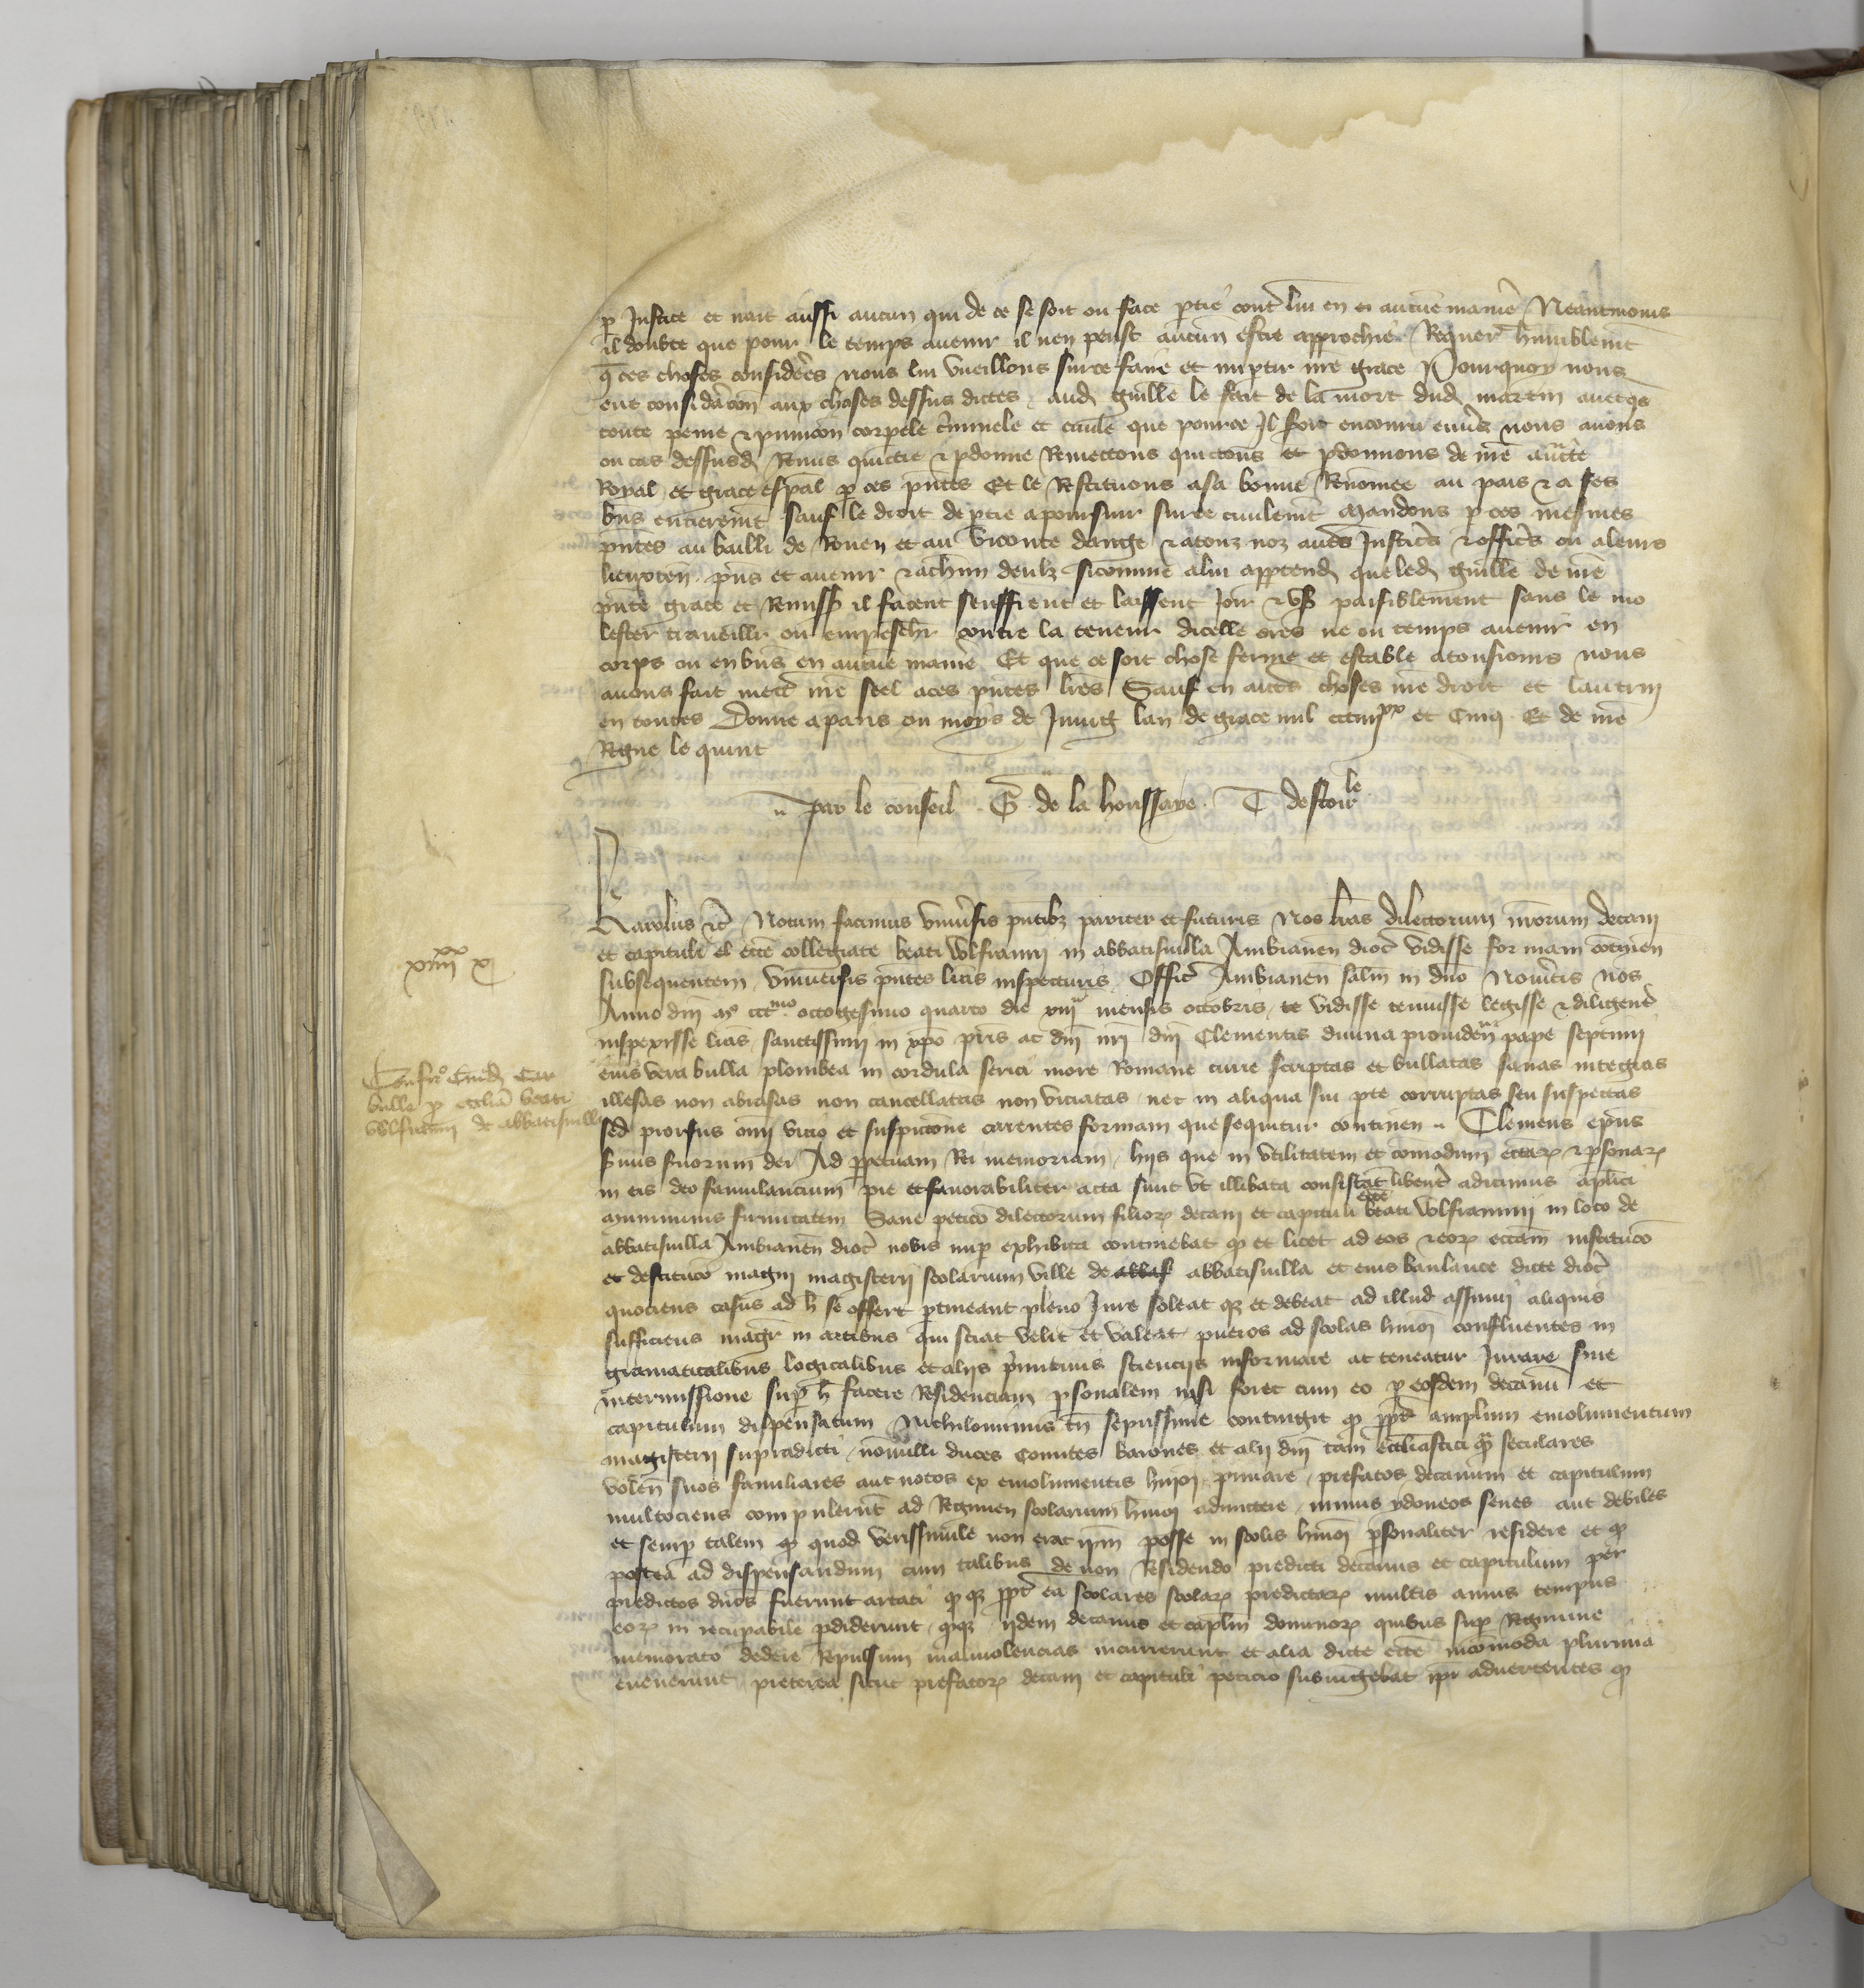 p Justice et nait aussi aucun qui de ce se soit ou face ptie cont lui en ci aucune maniere Neantmoins
il doubte que pour le temps avenir il nen peust aucun estre approchie Requer humblemt
q ces choses considerees nous lui vueillons sur ce faire et impartir nre grace Pourquoy nous
eue consideracon aux choses dessus dictes aud guille le fait de la mort dud martin avecqs
toute peine & punicon corpele criminele et civile que pource Il soit encouru envers nous avons
ou cas dessusd Remis quictie & pdonne Remettons quictons et pdonnons de nre aucte
Royal et grace espal p ces pntes Et le Restituons a sa bonne Renomee au pais & a ses
bns entieremt Sauf le droit de ptie a poursuir sur ce civilemt Mandons p ces mesmes
pntes au bailli de Rouen et au viconte dauge & a touz noz autes Justiciers & officrs ou a leurs
lieuxten pns et avenir & a chun deulz sicomme a lui apptend que led guille de nre
pnte grace et Remiss il facent seuffrent et laissent Joir & us paisiblement sans le mo
lester travaillr ou empeschr contre la teneur dicelle ores ne ou temps avenir en
corps ou en bns en aucune maniere Et que ce soit chose ferme et estable a tousiours nous
avons fait mectr nre seel a ces pntes lres Sauf en autes choses nre droit et lautruy
en toutes Donne a paris ou moys de Juing lan de grace mil ccc iiijxx et Cinq Et de nre
Regne le quint
Par le conseil G de la houssaye T destoirle
Karolus &c Notum facimus Universis pntibz pariter et futuris Nos lras dilectorum nrorum decani
et capituli eccle collegiate beati Wlfranni in abbatisvilla Ambianen dioc vidisse formam continen
subsequentem Universis pntes lras inspecturis Offic Ambianen salm in dno Noveritis nos
Anno dni m ccc mo octogesimo quarto die xiiij mensis octobris te vidisse tenuisse legisse & diligent
inspexisse lras sanctissimi in xpo pris ac dni nri dni Clementis divina providen pape septimi
eius vera bulla plombea in cordula serici more Romane curie scriptas et bullatas sanas integras
illesas non abrasas non cancellatas non viciatas nec in aliqua sui pte corruptas seu suspectas
sed prorsus omi vicio et suspicione carentes formam que sequitur continen Clemens epus
Servus svorum dei Ad ppetuam Rei memoriam hiis que in utilitatem et comodum ecclar & psonar
in eis deo famulancium pie et favorabiliter acta sunt ut illibata consistat libent adicimus aplici
muniminis firmitatem Sane peticio dilectorum filior decani et capituli eccle beati Wlfranni in loco de
abbatisvilla Ambianen dioc nobis nup exhibita continebat q et licet ad eos & eor eccam institucio
et destitucio magni magisterii scolarum ville de abbas abbatisvilla et eius banlauce dicte dioc
quociens casus ad h se offert ptineant pleno Jure soleat qz et debeat ad illud assumi aliquis
sufficiens magr in artibus qui sciat velit et valeat pueros ad scolas hmoi confluentes in
gramaticalibus logicalibus et aliis primitivis scienciis informare ac teneatur Jurare sine
intermissione sup h facere Residenciam psonalem nisi foret cum eo p eosdem decanum et
capitulum dispensatum Nichilominus tn sepissime contingit q ppt amplum emolumentum
magisterii supradicti nonnulli duces Comites barones et alii dni tam ecclesiastici qm seculares
volen suos familiares aut notos ex emolumentis hmoi iuvare prefatos decanum et capitulum
multociens compulerunt ad Regimen scolarum hmoi admittere minus ydoneos senes aut debiles
et semp talem q quod verissimile non erat ipm posse in scolis hmoi psonaliter residere et q
postea ad dispensandum cum talibus de non Residendo predicti decanus et capitulum per
predictos dnos fuerunt artati q qz ppt ea scolares scolar predictar multis annis tempus
eor in recupabile pdiderunt qz iidem decanus et caplm dominor quibus sup Regimine
memorato dedere Repulsum malivolencias incurrerunt et alia dicte eccle incomoda plurima
evenerunt preterea sicut prefator decani et capituli peticio subiungebat ipi advertentes q
xiiijxx xj
Confir cuiusd
bulle p eccliam beati
Wlfranni de abbatisvilla